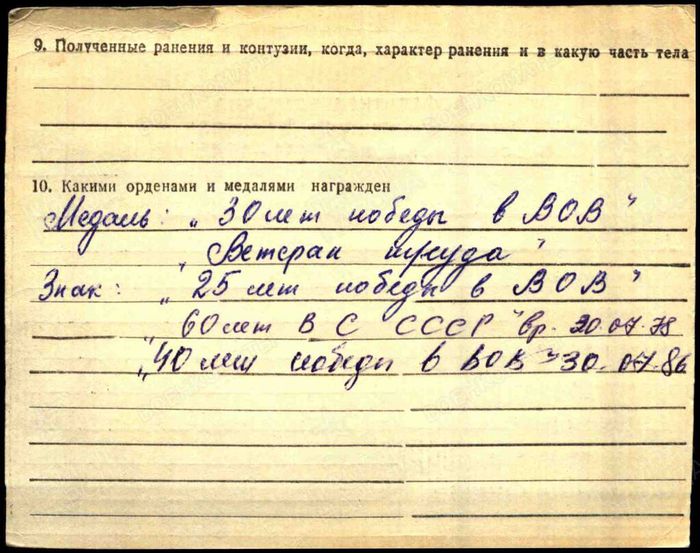 9. Полученные ранения и контузии, когда, характер ранения и в какую часть тела
10. Какими орденами и медалями награжден
Медаль: „30 лет победы в ВОВ"
„Ветеран труда"
Знак: „25 лет победы в ВОВ"
„60 лет В С СССР" вр. 20.07.78
„40 лет победы в ВОВ" 30.07.86